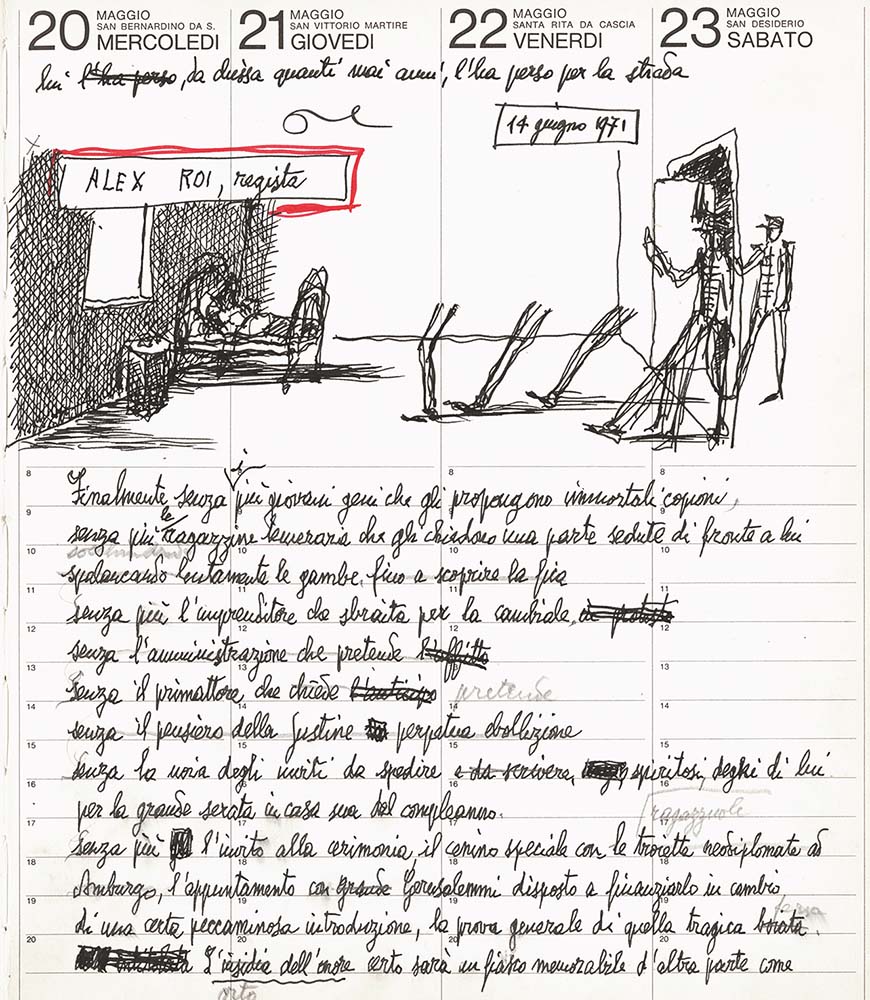 20 MAGGIO SAN BERNARDINO DA S. MERCOLEDI
21 MAGGIO SAN VITTORIO MARTIRE GIOVEDI
22 MAGGIO SANTA RITA DA CASCIA VENERDI
23 MAGGIO SAN DESIDERIO SABATO
lui l'ha perso, da chissa quanti mai anni, l'ha perso per la strada
14 giugno 1971
ALEX ROI, regista
Finalmente senza i più giovani geni che gli propongono immortali copioni,
senza più le ragazzine temerarie che gli chiedono una parte sedute di fronte a lui
spalancando lentamente le gambe fino a scoprire la fica
senza più l'imprenditore che sbraita per la cambiale, in protesto
senza l'amministrazione che pretende l'affitto
senza il primattore che chiede l'anticipo pretende
senza il pensiero della Justine perpetua ebollizione
senza la noia degli inviti da spedire e da scrivere, spiritosi, degni di lui
per la grande serata in casa sua del compleanno.
ragazzuole
senza più l'invito alla cerimonia, il cenino speciale con le trocette neodiplomate ad
Amburgo, l'appuntamento con grande Gerusalemmi disposto a finanziarlo in cambio
di una certa peccaminosa introduzione, la prova generale di quella tragica boiata. farsa
L'insidia dell'onore certo sarà un fiasco memorabile d'altra parte come
orto
8 8 8 8
9 9 9 9
10 10 10 10
11 11 11 11
12 12 12 12
13 13 13 13
14 14 14 14
15 15 15 15
16 16 16 16
17 17 17 17
18 18 18 18
19 19 19 19
20 20 20 20